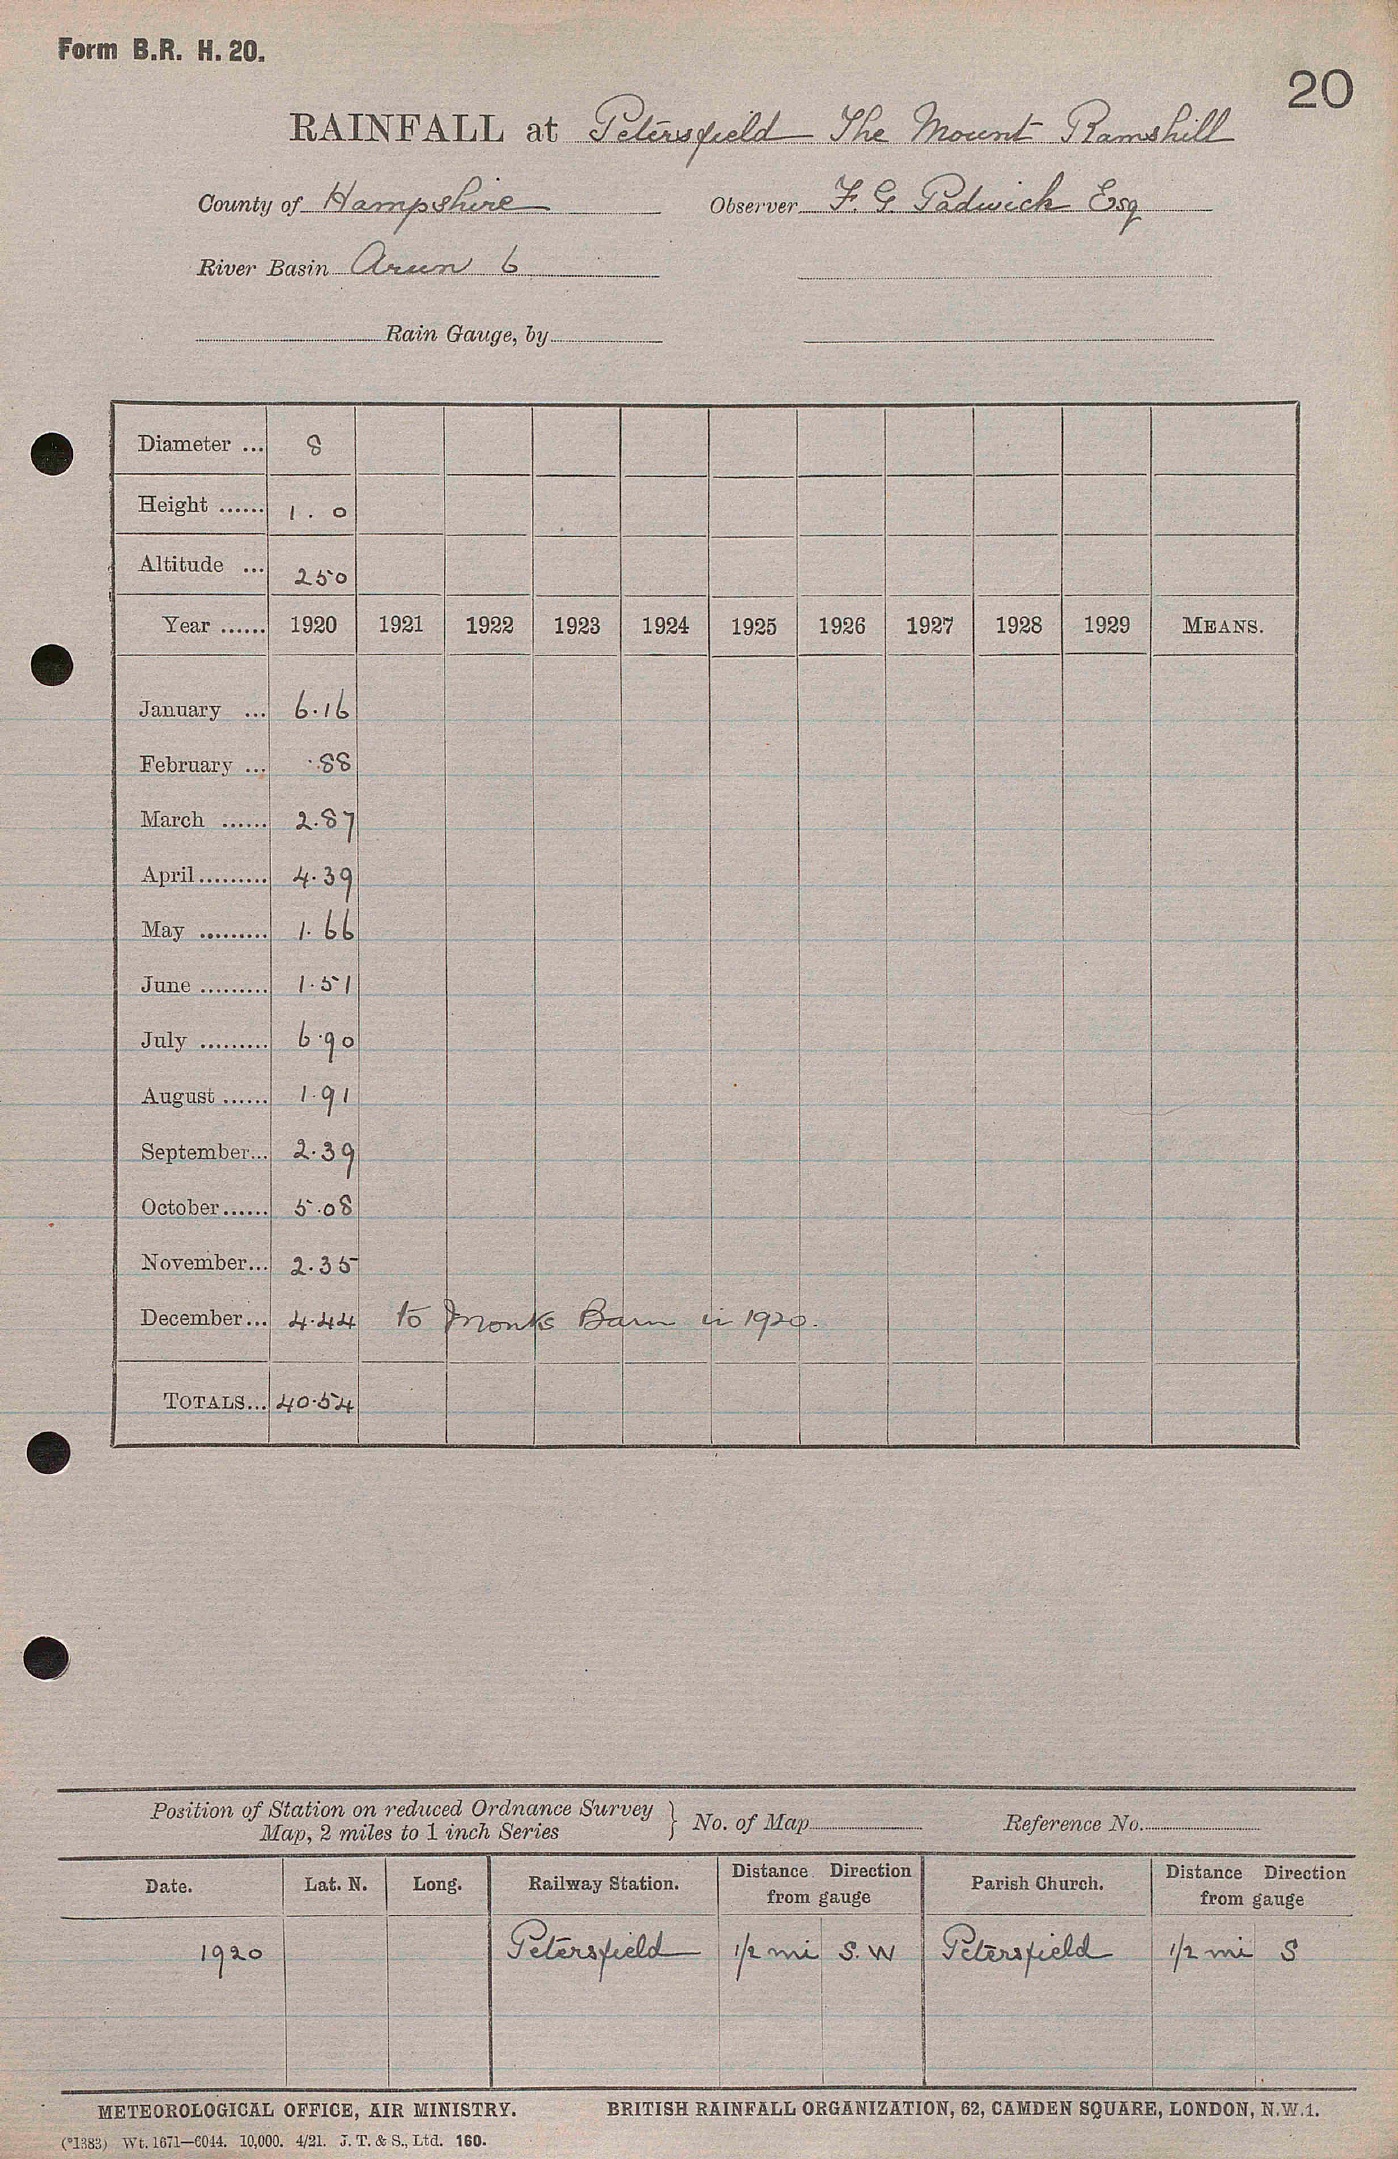 Form B.R. H. 20.
20
RAINFALL at Petersfield The Mount Ramshill
County of Hampshire Observer F. G. Padwick Esq
River Basin Arun 6
Rain Gauge, by
Diameter ... 8
Height ...... 1.0
Altitude ... 250
Year ...... 1920 1921 1922 1923 1924 1925 1926 1927 1928 1929 MEANS.
January ... 6.16
February ... .88
March ...... 2.87
April ......... 4.39
May ......... 1.66
June ......... 1.51
July ......... 6.90
August ...... 1.91
September... 2.39
October...... 5.08
November... 2.35
December... 4.44 to Monks Barn in 1920.
TOTALS... 40.54
Position of Station on reduced Ordnance Survey
Map, 2 miles to 1 inch Series } No. of Map Reference No.
Date. Lat. N. Long. Railway Station. Distance Direction from gauge Parish Church. Distance Direction from gauge
1920 Petersfield 1/2 mi S.W Petersfield 1/2 mi S
METEOROLOGICAL OFFICE, AIR MINISTRY. BRITISH RAINFALL ORGANIZATION, 62, CAMDEN SQUARE, LONDON, N.W.1.
(*1383) Wt. 1671—6044. 10,000. 4/21. J. T. & S., Ltd. 160.